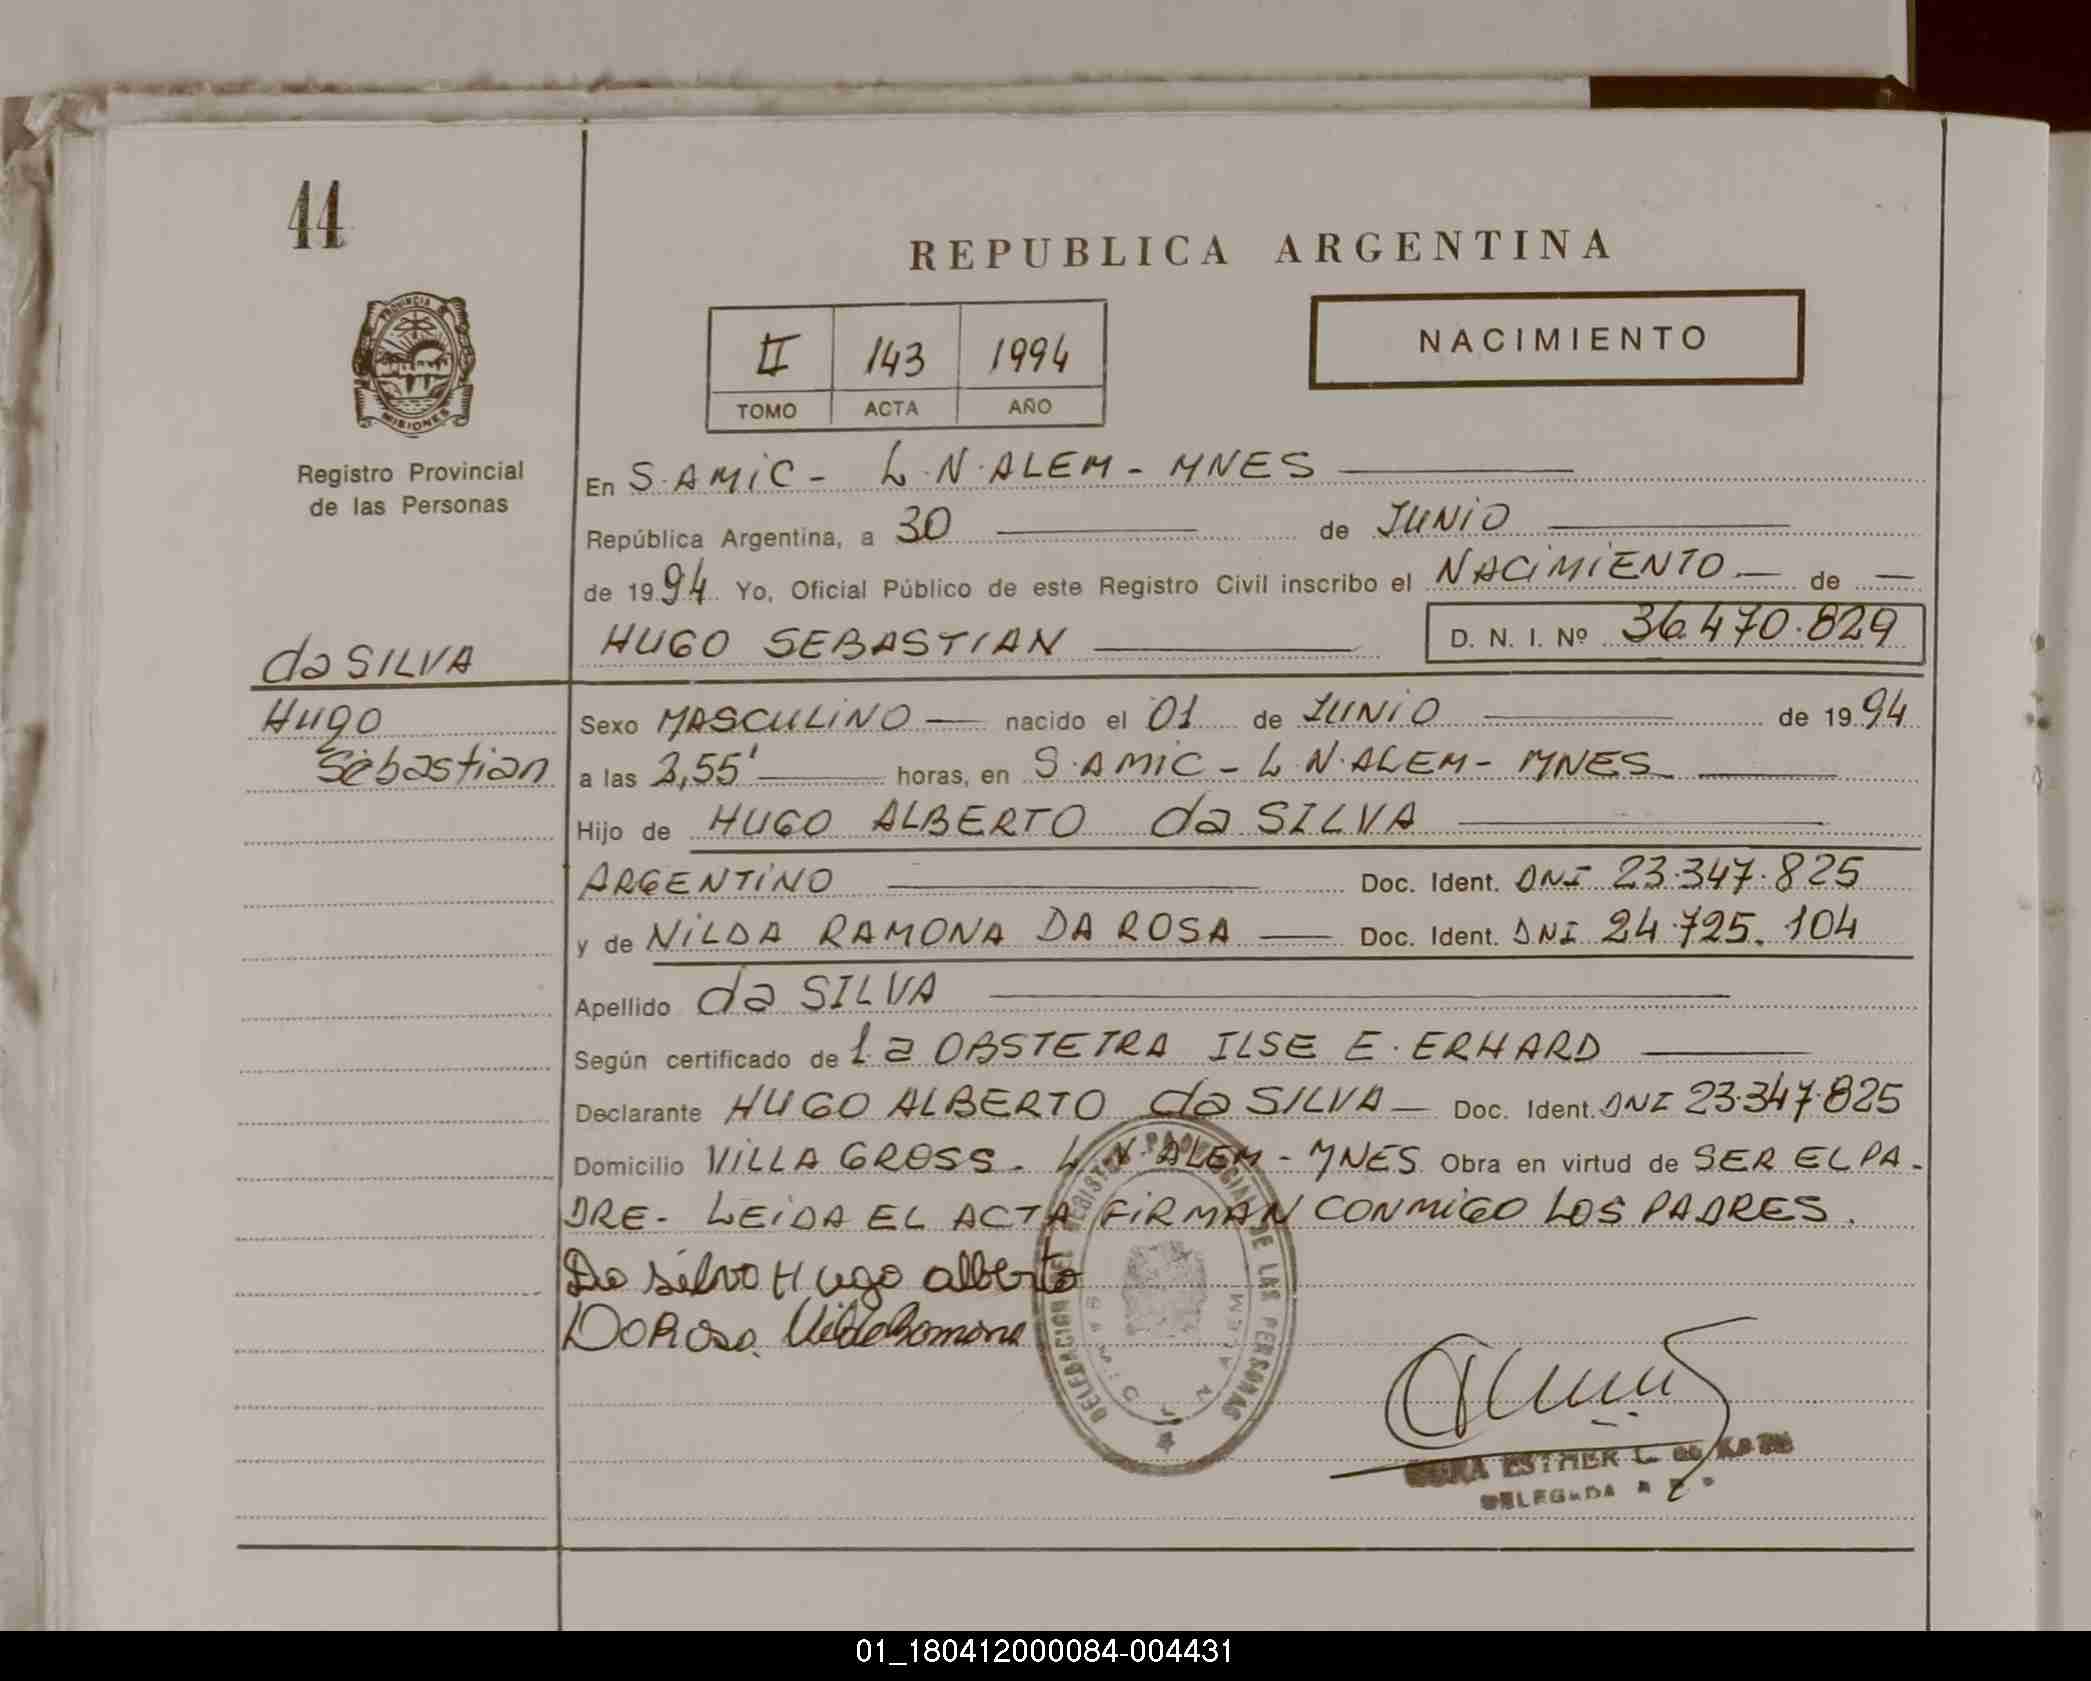 44
REPUBLICA ARGENTINA
PROVINCIA
MISIONES
Registro Provincial
de las Personas
II 143 1994
TOMO ACTA AÑO
NACIMIENTO
En S. AMIC - L. N. ALEM - MNES
República Argentina, a 30 de JUNIO
de 1994 Yo, Oficial Público de este Registro Civil inscribo el NACIMIENTO de
HUGO SEBASTIAN D. N. I. Nº 36.470.829
da SILVA
Hugo
Sebastian
Sexo MASCULINO nacido el 01 de JUNIO de 1994
a las horas, en S. AMIC - L. N. ALEM - MNES
Hijo de HUGO ALBERTO da SILVA
ARGENTINO Doc. Ident. DNI 23.347.825
y de NILDA RAMONA DA ROSA Doc. Ident. DNI 24.725.104
Apellido da SILVA
Según certificado de la OBSTETRA ILSE E. ERHARD
Declarante HUGO ALBERTO da SILVA Doc. Ident. DNI 23.347.825
Domicilio VILLA GROSS. L. N. ALEM - MNES Obra en virtud de SER EL PA-
DRE - LEIDA EL ACTA FIRMAN CONMIGO LOS PADRES.
Da Silva Hugo alberto
Da Rosa Nilda Ramona
DELEGACION DEL REGISTRO PROVINCIAL DE LAS PERSONAS
ESTHER L. de
DELEGADA
01_180412000084-004431